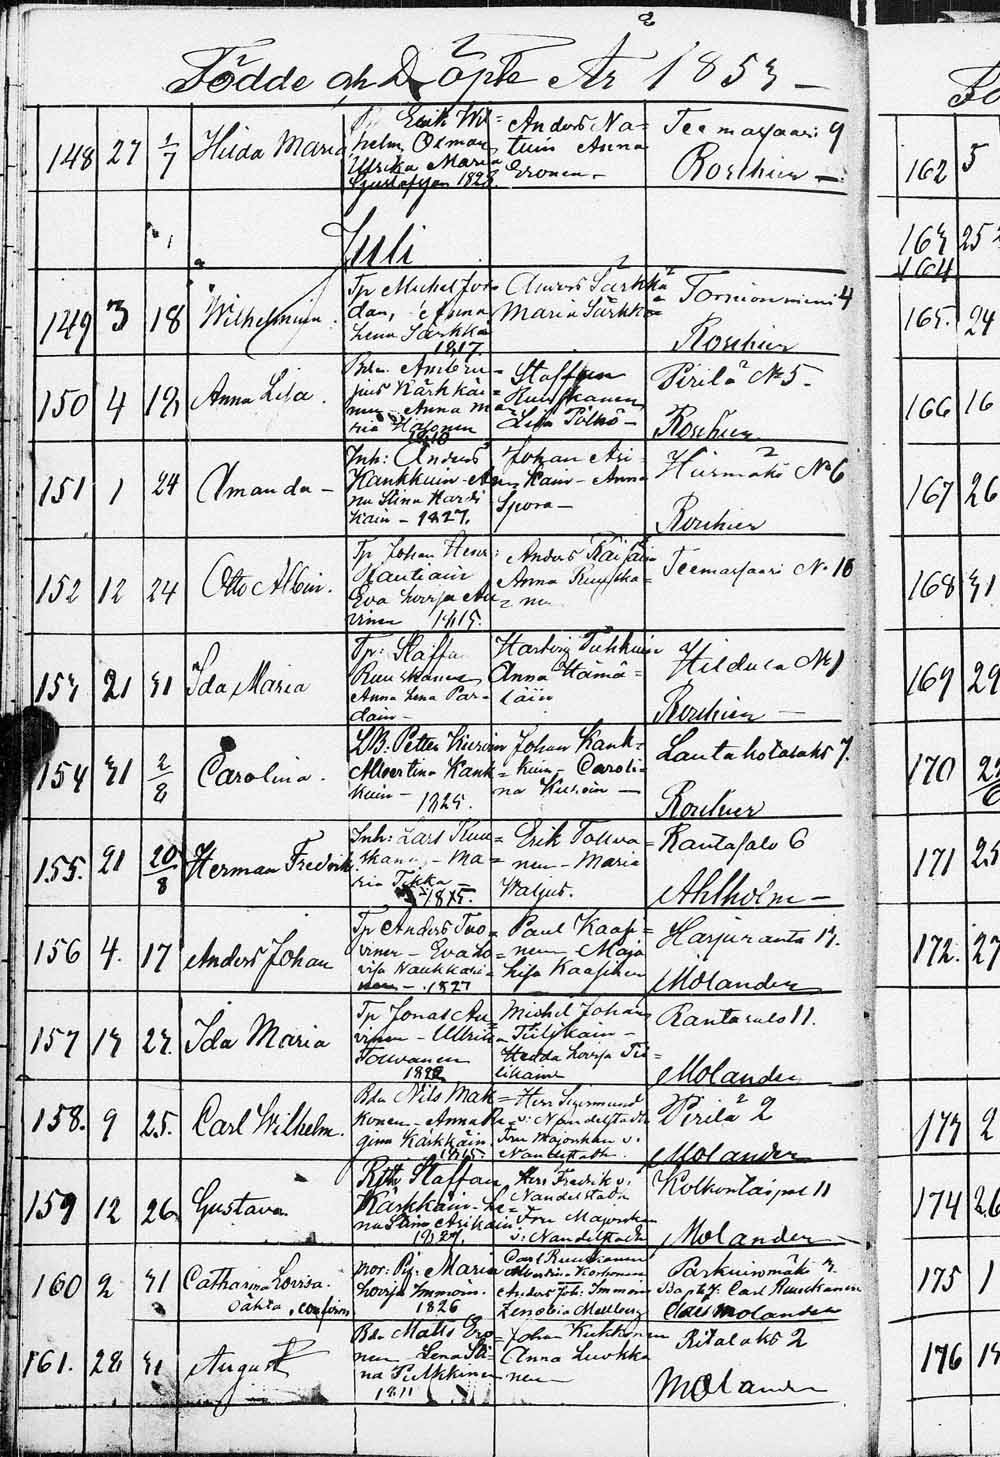 Födde och Döpte År 1853 –
148 27 2/7 Hilda Maria Erik Wilhelm Öman Ulrika Maria Gustafsson 1828. Anders Natuin Anna Eronen – Teemassaari 9 Roschier –
Juli
149 3 18 Wilhelmina Tp Michel Jordan, Anna Lena Särkkä 1817. Anders Särkkä Maria Särkkä Tornionniemi 4 Roschier
150 4 18 Anna Lisa Bdn Kärkkäinen Anna Maria Halonen 1810 Staffan Ruuskanen Lisa Pölkö – Pirilä No 5. Roschier
151 1 24 Amanda – Inh: Anders Kankkuin Anna Stina Hardikain – 1827. Johan Asikain – Anna Spora – Hiirmäki No 6 Roschier
152 12 24 Otto Albin. Tp Johan Henr: Rautiain Eva Lovisa Auvinen 1815. Anders Anna Ruuskanen Teemassaari No 16
153 21 31 Ida Maria Tp: Staffan Ruuskanen Anna Lena Pardain – Hartvig Tiihkain Anna Hämäläin Hildula No 1 Roschier –
154 31 2/8 Carolina. LB: Petter Kusoin Albertina Kankkuin – 1825. Johan Kankkuin – Carolina Kusoin – Lautakotalaks 7. Roschier
155. 21 20/8 Herman Fredrik Inh: Lars Ruuskanen – Maria Tikka – 1815. Erik Tolwanen – Maria Waljus. Rantasalo 6 Ahlholm –
156 4. 17 Anders Johan Tp Anders Tuovinen – Eva Lovisa Naukkarinen – 1827 Paul Kaasinen – Maja Lisa Kaasinen Harjuranta 13. Molander
157 13 23. Ida Maria Tp Jonas Auvinen – Ulrika Tolwanen 1822 Michel Johan Tiilikain – Hedda Lovisa Tiilikaine Rantasalo 11. Molander
158. 9 25. Carl Wilhelm. Bdn Nils Makkonen – Anna Regina Kärkkäin 1815. Herr Sigismund v: Nandelstadh Fru Majorskan v. Nandelstadh. Pirilä 2 Molander
159 12 26 Gustava Staffan Kärkkäin – Lena Stina Asikain 1827. Herr Fredrik v: Nandelstadh Fru Majorskan v: Nandelstadh Kolkontaipal 11 Molander
160 2 31 Catharina Lovisa. Oäkta, conform Pig: Maria Lovisa Immoin. 1826 Carl Ruuskanen Albertina Korhonen Anders Joh: Immoin Zenobia Mellberg Parkuinmäki 3. Bapt. f: Carl Ruuskanen Claes Molander
161. 28 31 August Bdn Matts Eronen Lena Stina Pulkkinen 1811 Johan Kukkonen Anna Luokkanen Ritalaks 2 Molander
162 5
163 25
164
165. 24
166 16
167 26
168 31
169 29
170 22
171 25
172. 27
173 2
174 26
175 1
176 13